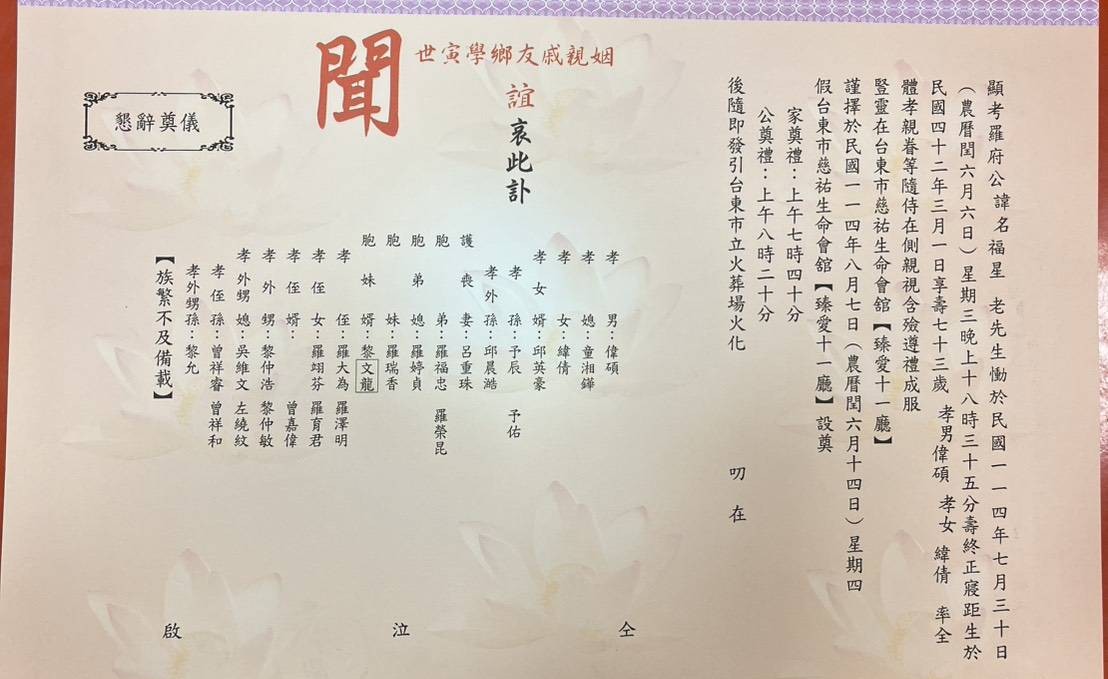 顯考羅府公諱名福星 老先生慟於民國一一四年七月三十日
（農曆閏六月六日）星期三晚上十八時三十五分壽終正寢距生於
民國四十二年三月一日享壽七十三歲 孝男偉碩 孝女 緯倩 率全
體孝親眷等隨侍在側親視含殮遵禮成服
豎靈在台東市慈祐生命會舘【臻愛十一廳】
謹擇於民國一一四年八月七日（農曆閏六月十四日）星期四
假台東市慈祐生命會舘【臻愛十一廳】設奠
家奠禮：上午七時四十分
公奠禮：上午八時二十分
後隨即發引台東市立火葬場火化 叨在
姻親戚友鄉學寅世
誼哀此訃
聞
孝男：偉碩
孝媳：童湘鏵
孝女：緯倩
孝女婿：邱英豪
孝孫：予辰 予佑
孝外孫：邱晨澔
護喪妻：呂重珠
胞弟：羅福忠 羅榮昆
胞弟媳：羅婷貞
胞妹：羅瑞香
胞妹婿：黎文龍
孝侄：羅大為 羅澤明
孝侄女：羅翊芬 羅育君
孝侄婿： 曾嘉偉
孝外甥：黎仲浩 黎仲敏
孝外甥媳：吳維文 左繞紋
孝侄孫：曾祥睿 曾祥和
孝外甥孫：黎允
【族繁不及備載】
仝 泣 啟
懇辭奠儀